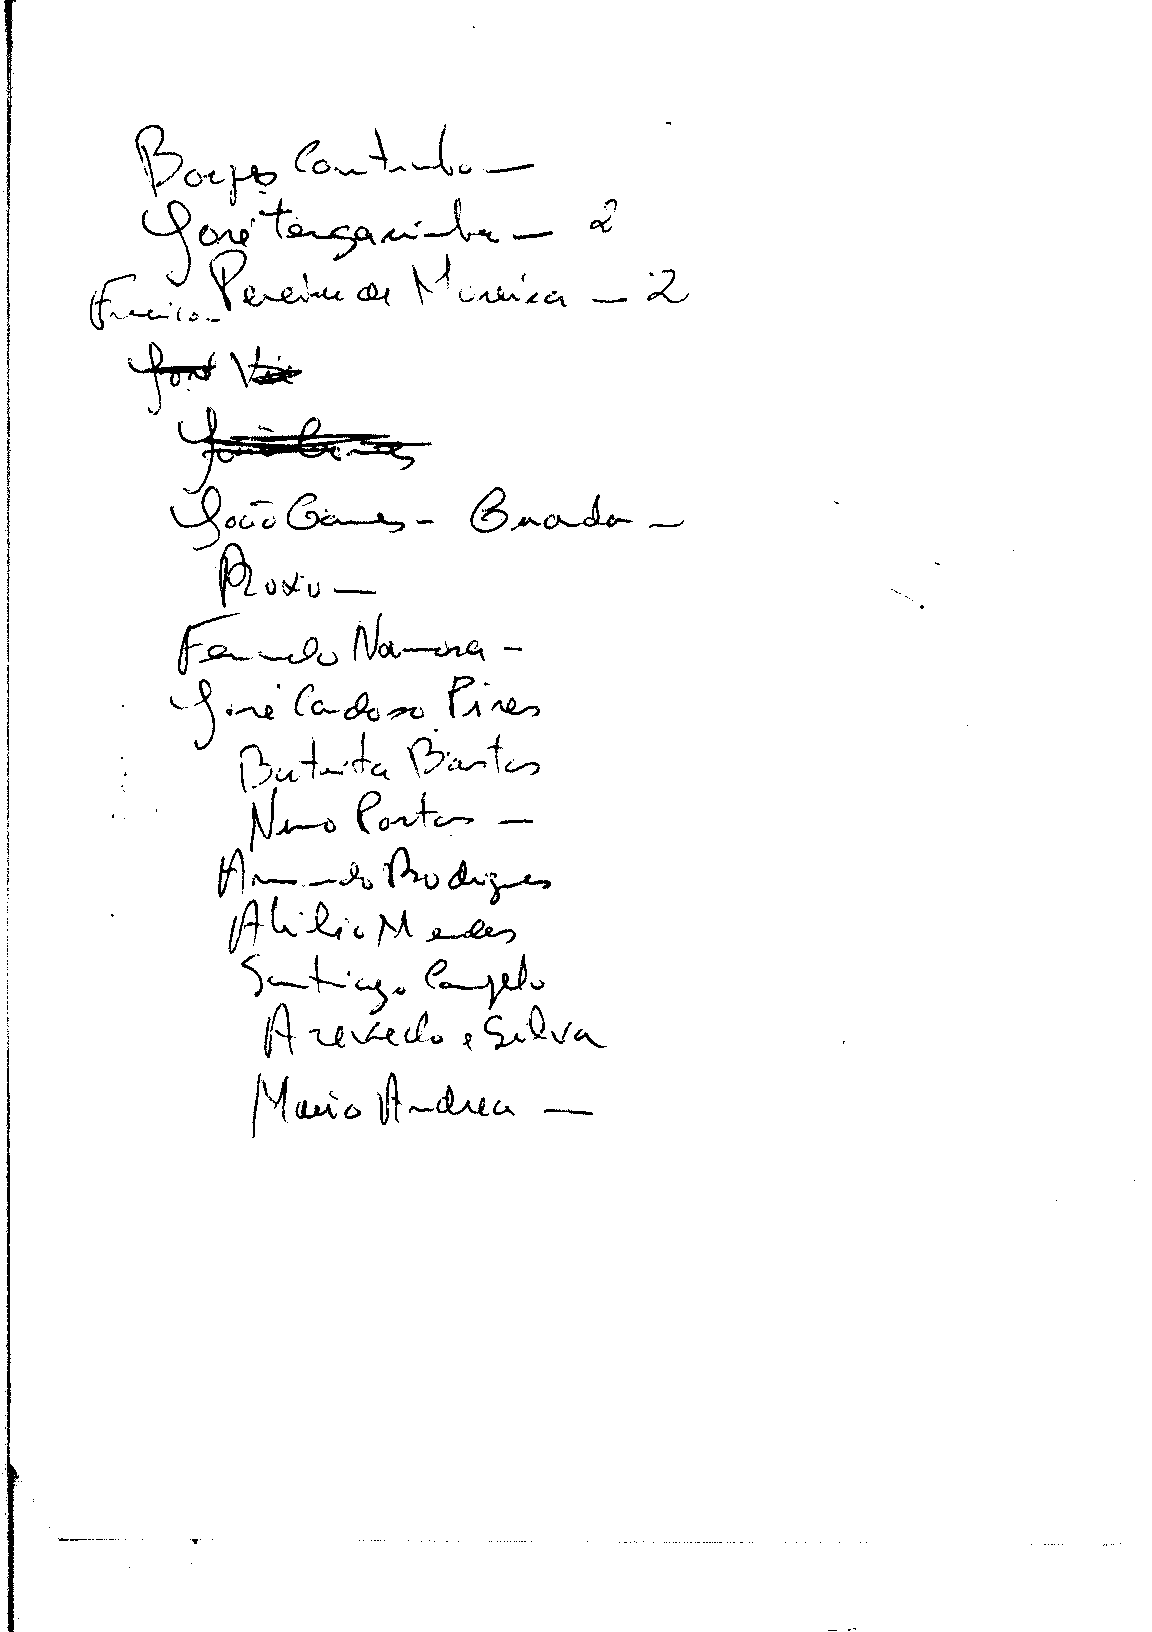 Borges Coutinho —
José Tengarrinha — 2
Francisco Pereira de Moura — 2
José
João Gomes
João Gomes - Guarda —
Roxo —
Fernando Namora —
José Cardoso Pires
Batista Bastos
Nuno Portas —
Armando Rodrigues
Abílio Mendes
Santiago Cangelo
Azevedo e Silva
Mario Andrea —